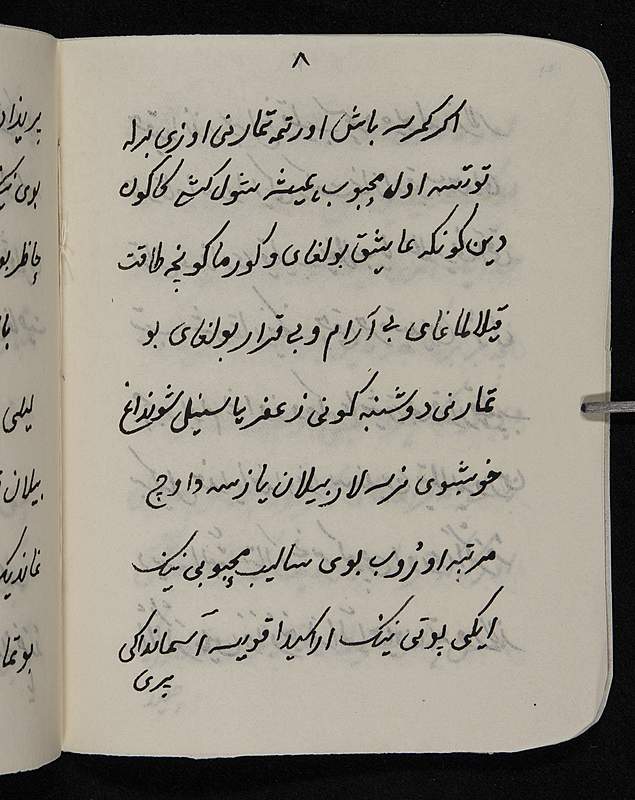 ۸
اکر کمرسه باش اورتمه تمارنی اوزی برله
توتسه اول محبوب عمیشه شول کشی کا کون
دین کونکه عاشیق بولغای و کورماکونچه طاقت
قیلالماغای بی آرام و بی قرار بولغای بو
تمارنی دوشنبه کونی زعفر یا سنبل شونداغ
خوشبوی نرسه لار بیلان یازسه داوچ
مرتبه اوروب بوی سالیب محبوبی نینک
ایکی پوتی نینک اراکیدا قویسه آسمانداکی
پری
پریزاد
بوی
حاظر بو
با
لیلی
بیلان
بوتما